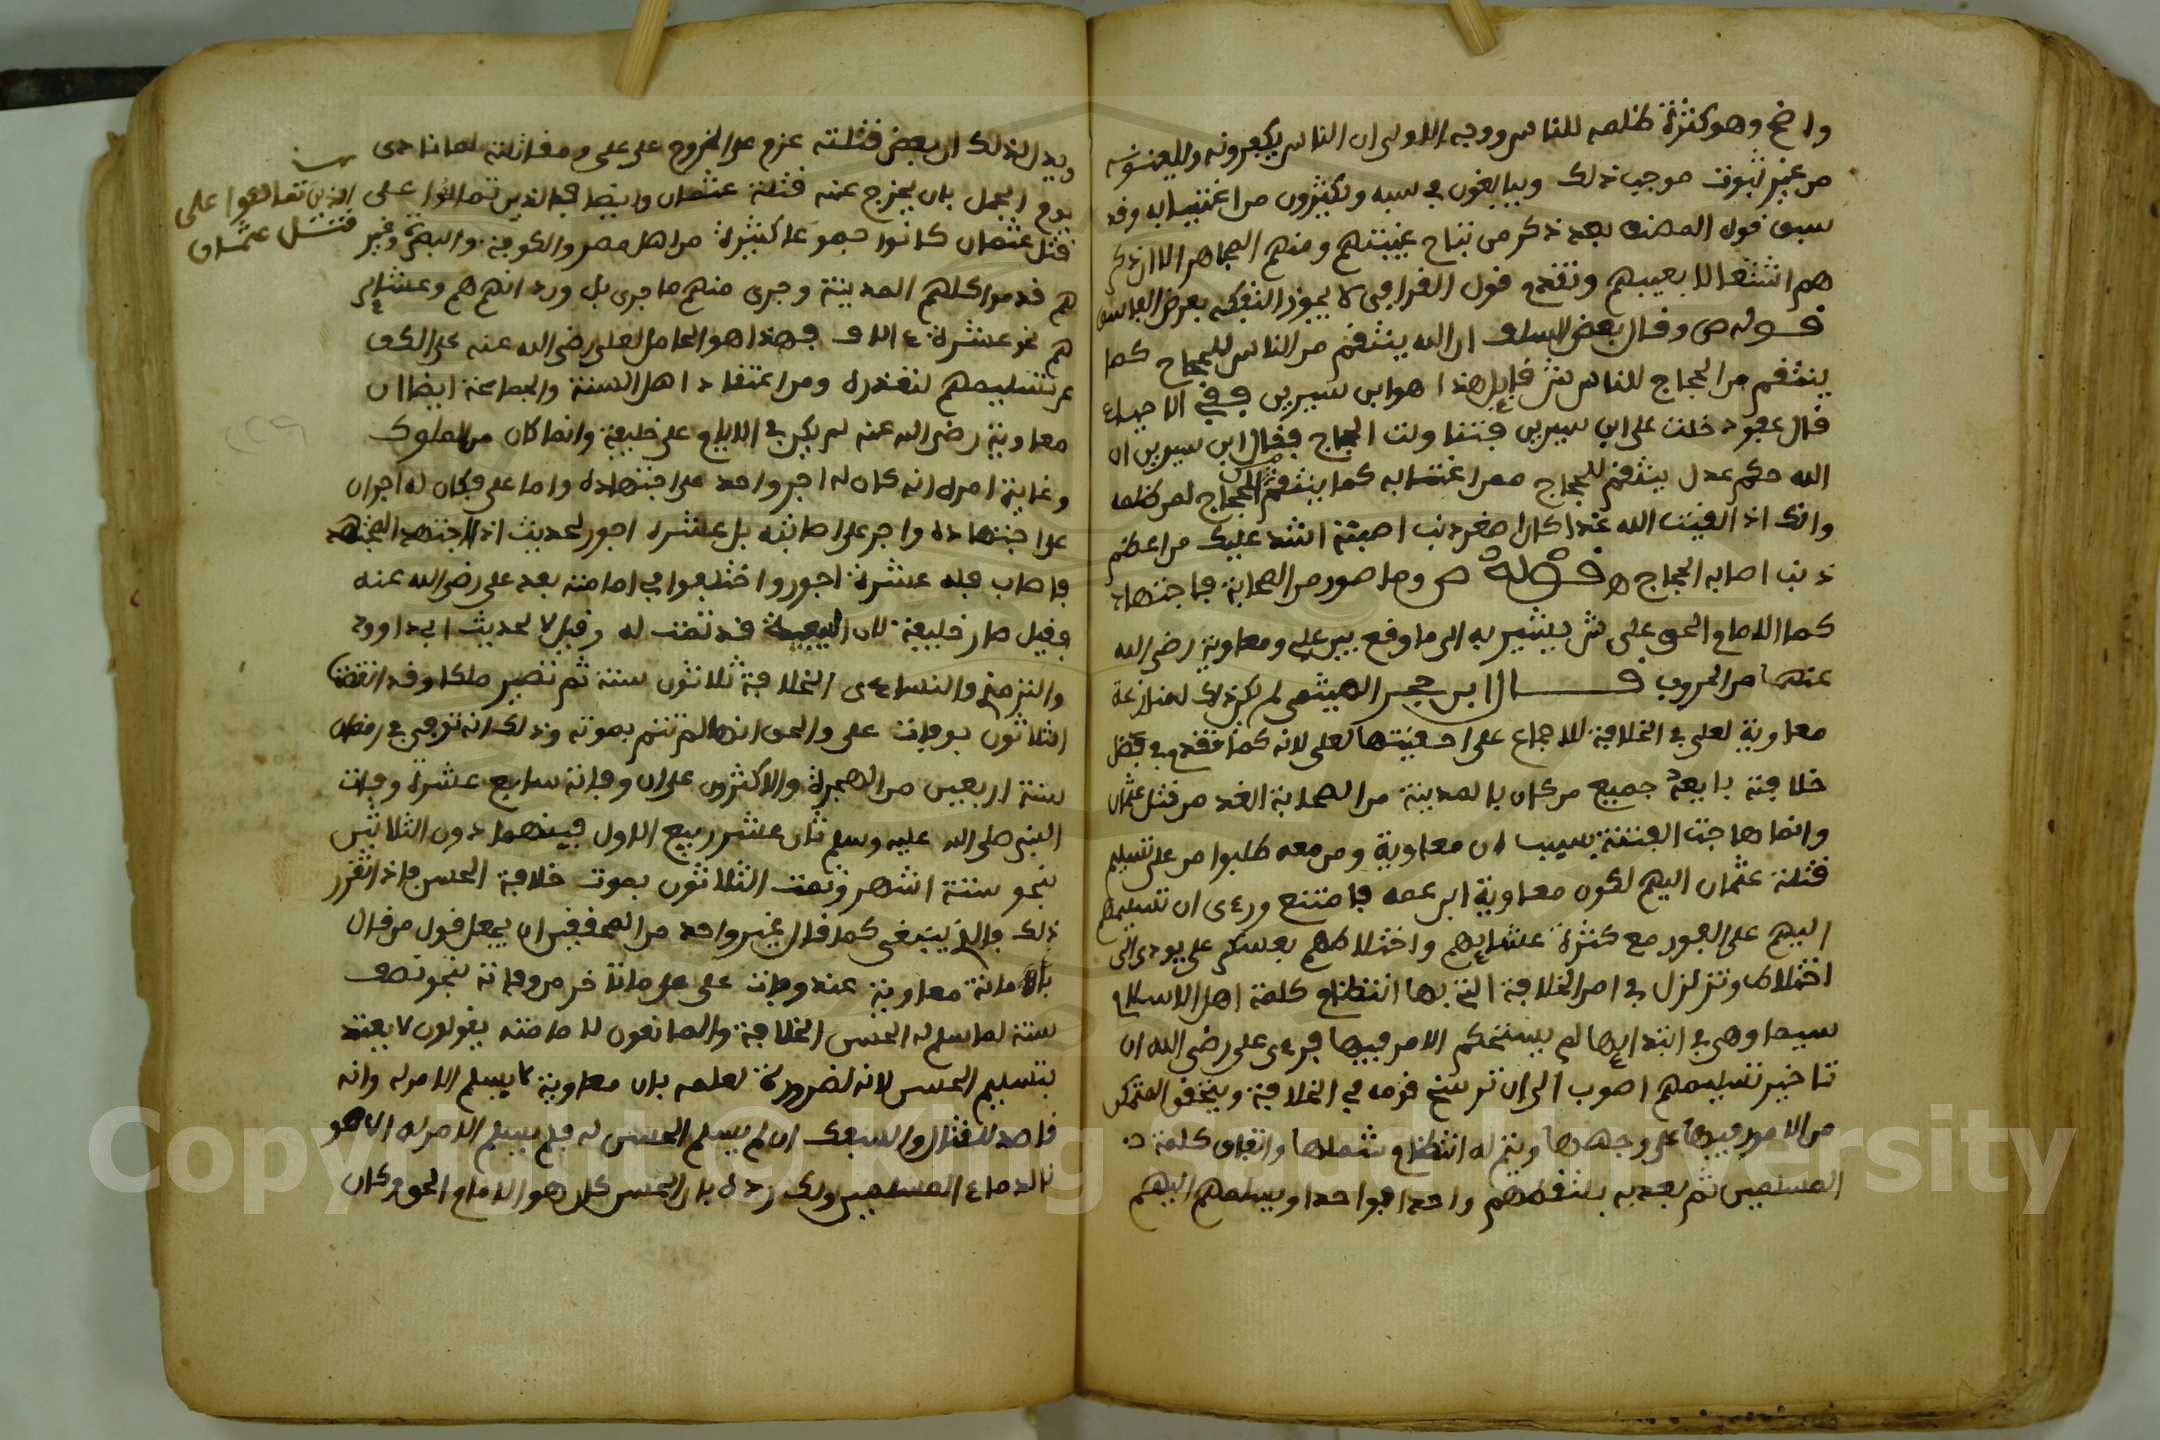 واضح وهو كثرة ظلمه للناس ووجه الاول ان الناس يكفرونه ويلعنونه
من غير ثبوت موجب ذلك ويبالغون في سبه ويكثرون من اغتيابه وقد
سبق قول المصنف بعد ذكر من تباح غيبتهم ومنهم المجاهر الا ان ذكر
هم اشتغالا بعيبهم وتقدم قول القرافي لا يجوز التفكه بعرض الفاسق
قوله ص وقال بعض السلف ان الله ينتقم من الناس للحجاج كما
ينتقم من الحجاج للناس ش قايل هذا هو ابن سيرين ففي الاحياء
قال عوف دخلت على ابن سيرين فتناولت الحجاج فقال ابن سيرين ان
الله حكم عدل ينتقم للحجاج ممن اغتابه كما ينتقم من الحجاج لمن ظلمه
وانك اذا لقيت الله غدا كان اصغر ذنب اصبته اشد عليك من اعظم
ذنب اصابه الحجاج ه قوله ص وما صدر من الصحابة فباجتهاد
كما الامام الحق على ش يشير به الى ما وقع بين علي ومعاوية رضي الله
عنهما من الحروب قال ابن حجر الهيثمي لم يكن ذلك لمنازعة
معاوية لعلي في الخلافة للاجماع على احقيتها لعلي لانه كما تقدم في فضل
خلافته بايعه جميع من كان بالمدينة من الصحابة الغد من قتل عثمان
وانما هاجت الفتنة بسبب ان معاوية ومن معه طلبوا من علي تسليم
قتلة عثمان اليهم لكون معاوية ابن عمه فامتنع ورءى ان تسليمهم
اليهم على الفور مع كثرة عشايرهم واختلاطهم بعسكر علي يودي الى
اختلاط وتزلزل في امر الخلافة التي بها انتظام كلمة اهل الاسلام
سيما وهي في ابتدايها لم يستحكم الامر فيها فرءى علي رضي الله ان
تاخير تسليمهم اصوب الى ان ترسخ قدمه في الخلافة ويتحقق التمكن
من الامور فيها على وجهها ويتم له انتظام شملها واتفاق كلمة
المسلمين ثم بعد به يلتقطهم واحدا فواحدا ويسلمهم اليهم
ويدل لذلك ان بعض قتلته عزم على الخروج على علي ومقاتلته لما نادى
يوم الجمل بان يخرج عنه قتلة عثمان وايضا فالذين تمالئوا على
قتل عثمان كانوا جموعا كثيرة من اهل مصر والكوفة والبصرة وغير
هم قدموا كلهم المدينة وجرى منهم ما جرى بل ورد انهم هم وعشاير
هم نحو عشرة ءالاف فهذا هو الحامل لعلي رضي الله عنه على الكف
عن تسليمهم لتعذره ومن اعتقاد اهل السنة والجماعة ايضا ان
معاوية رضي الله عنه لم يكن في ايام علي خليفة وانما كان من الملوك
وغاية امره انه كان له اجر واحد على اجتهاده واما علي فكان له اجران
على اجتهاده واجر على اصابته بل عشرة اجور لحديث اذا اجتهد المجتهد
فاصاب فله عشرة اجور واختلفوا في امامته بعد علي رضي الله عنه
فقيل صار خليفة لان البيعة قد تمت له وقيل لا لحديث ابي داوود
والترمذي والنساءي الخلافة ثلاثون سنة ثم تصير ملكا وقد انقضت
الثلاثون بوفات علي والحق انها لم تتم بموته وذلك انه توفي في رمضان
سنة اربعين من الهجرة والاكثرون على ان وفاته سابع عشرة وفات
النبي صلى الله عليه وسلم ثاني عشر ربيع الاول فبينهما دون الثلاثين
بنحو ستة اشهر وتمت الثلاثون بموت خلافة الحسن فاذا تقرر
ذلك فالذي ينبغي كما قال غير واحد من المحققين ان يحمل قول من قال
بامامة معاوية عند وفات علي على ما تاخر من وفاته بنحو نصف
سنة لما سلم له الحسن الخلافة والمانعون لامامته يقولون لا يعتد
بتسليم الحسن لانه لضرورة لعلمه بان معاوية لا يسلم الامر له وانه
قاصد للقتال والسفك ان لم يسلم الحسن له فلم يسلم الامر له الا
لدماء المسلمين ولك رده بان الحسن كان هو الامام الحق وكان
الذين تمالئوا على
قتل عثمان